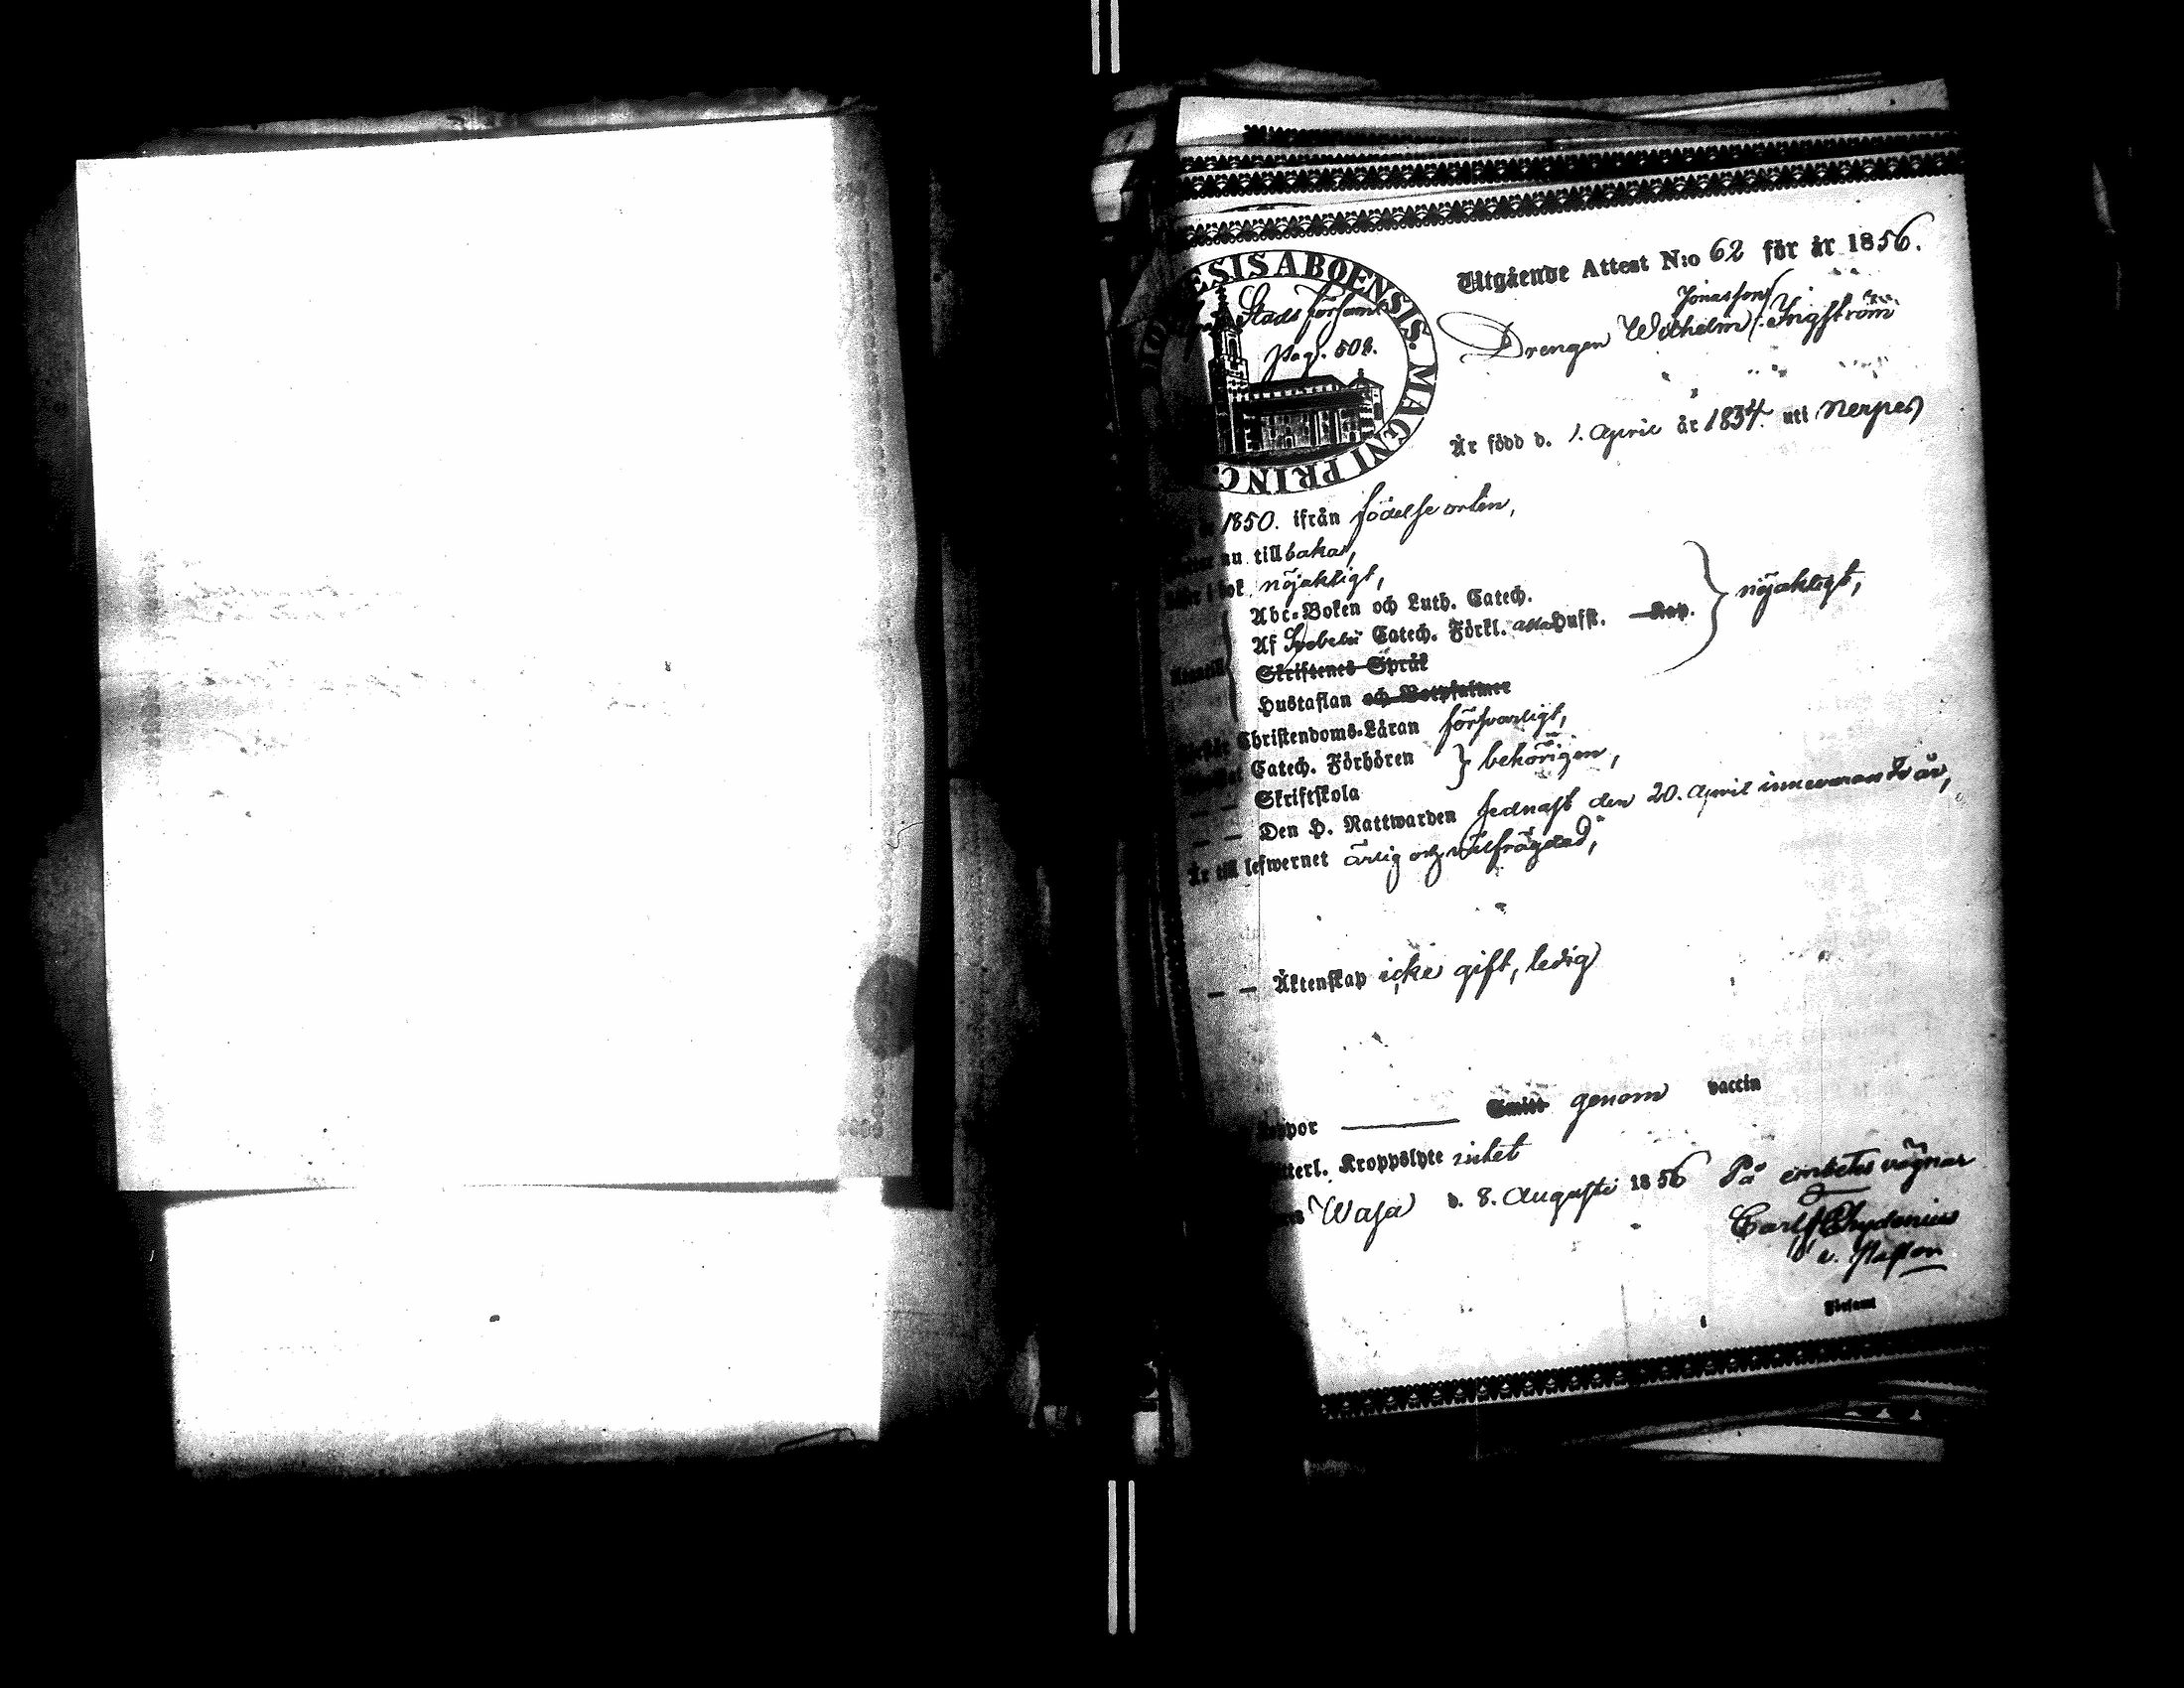 ESIS ABOENSIS. MAGNI PRINC
Stads Församl
pag. 508.
Utgående Attest N:o 62 för år 1856.
Jonasson
Drengen Wilhelm / Ingström
Är född d. 1. April år 1834. uti Nerpes
1850. ifrån födelse orten,
nu tillbaka,
i bok nöjaktigt,
Abc-Boken och Luth. Catech.
Af Svebelii Catech. Förkl. alla Hufst. Kap. } nöjaktigt,
Skriftenes Språk
Hustaflan och Botpsalmer
Christendoms-Läran försvarligt,
Catech. Förhören } behörigen,
— — Skriftskola
— — Den H. Nattwarden sednast den 20. April innevarande år,
Är till lefwernet ärlig och välfrägdad,
— — Äktenskap icke gift, ledig
koppor — Smitt genom vaccin
Kroppslyte intet
Wasa d. 8. Augusti 1856 På embetes vägnar
Carl Chydenius
v. Pastor
Församl